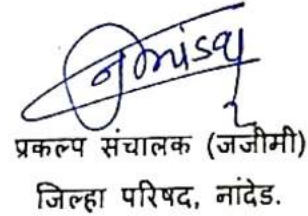 प्रकल्प संचालक (जजीमी)
जिल्हा परिषद, नांदेड.